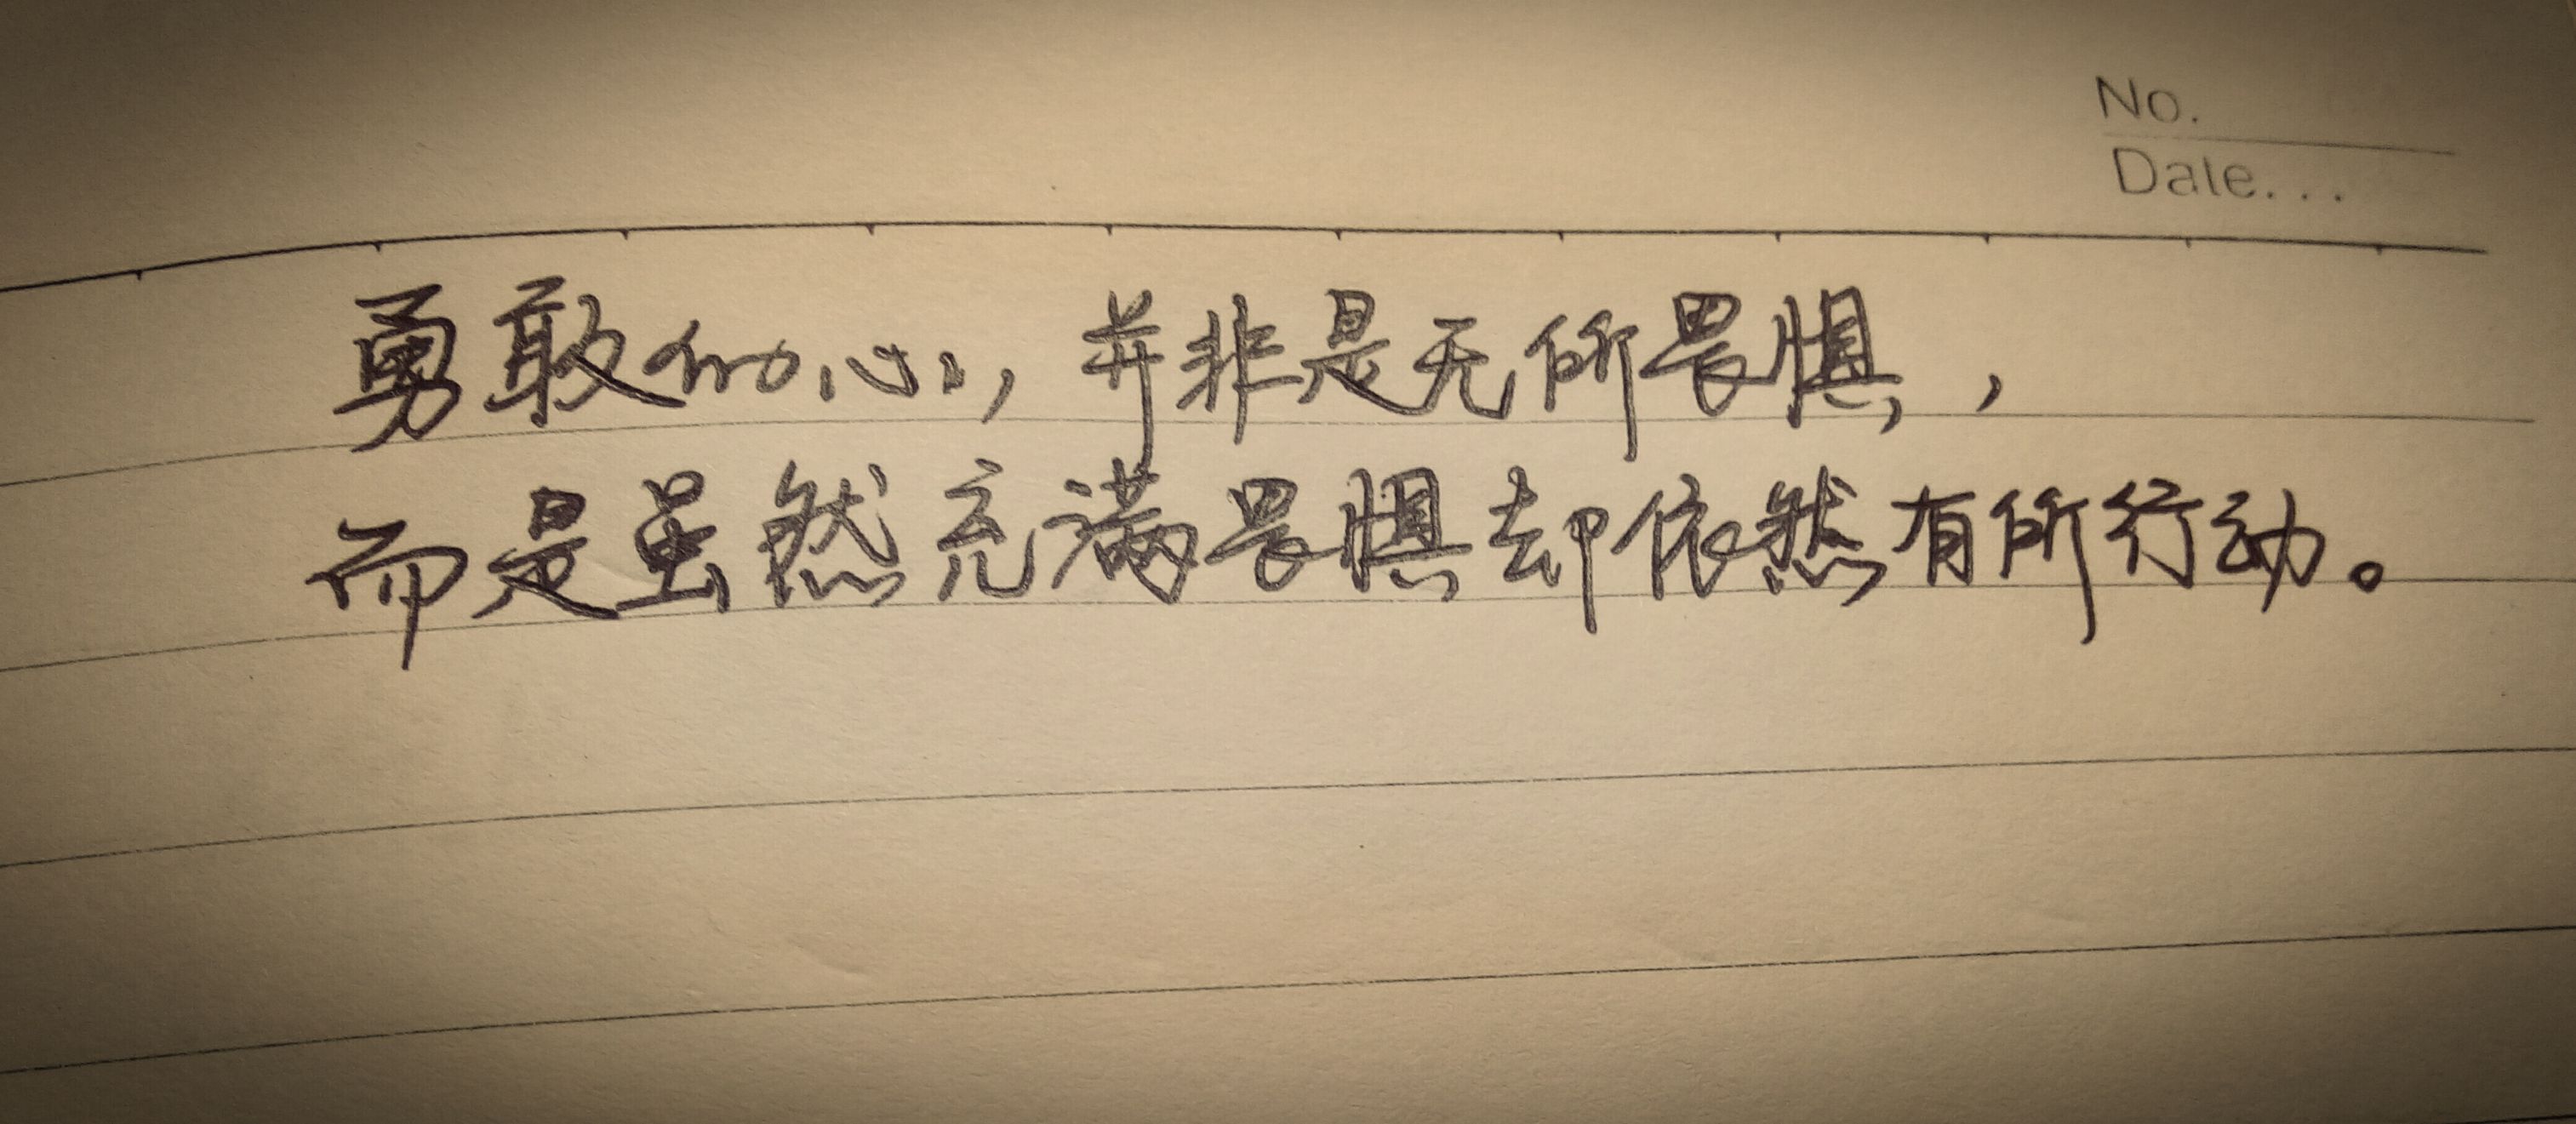 No.
Date...
勇敢的心，并非是无所畏惧，
而是虽然充满畏惧却依然有所行动。